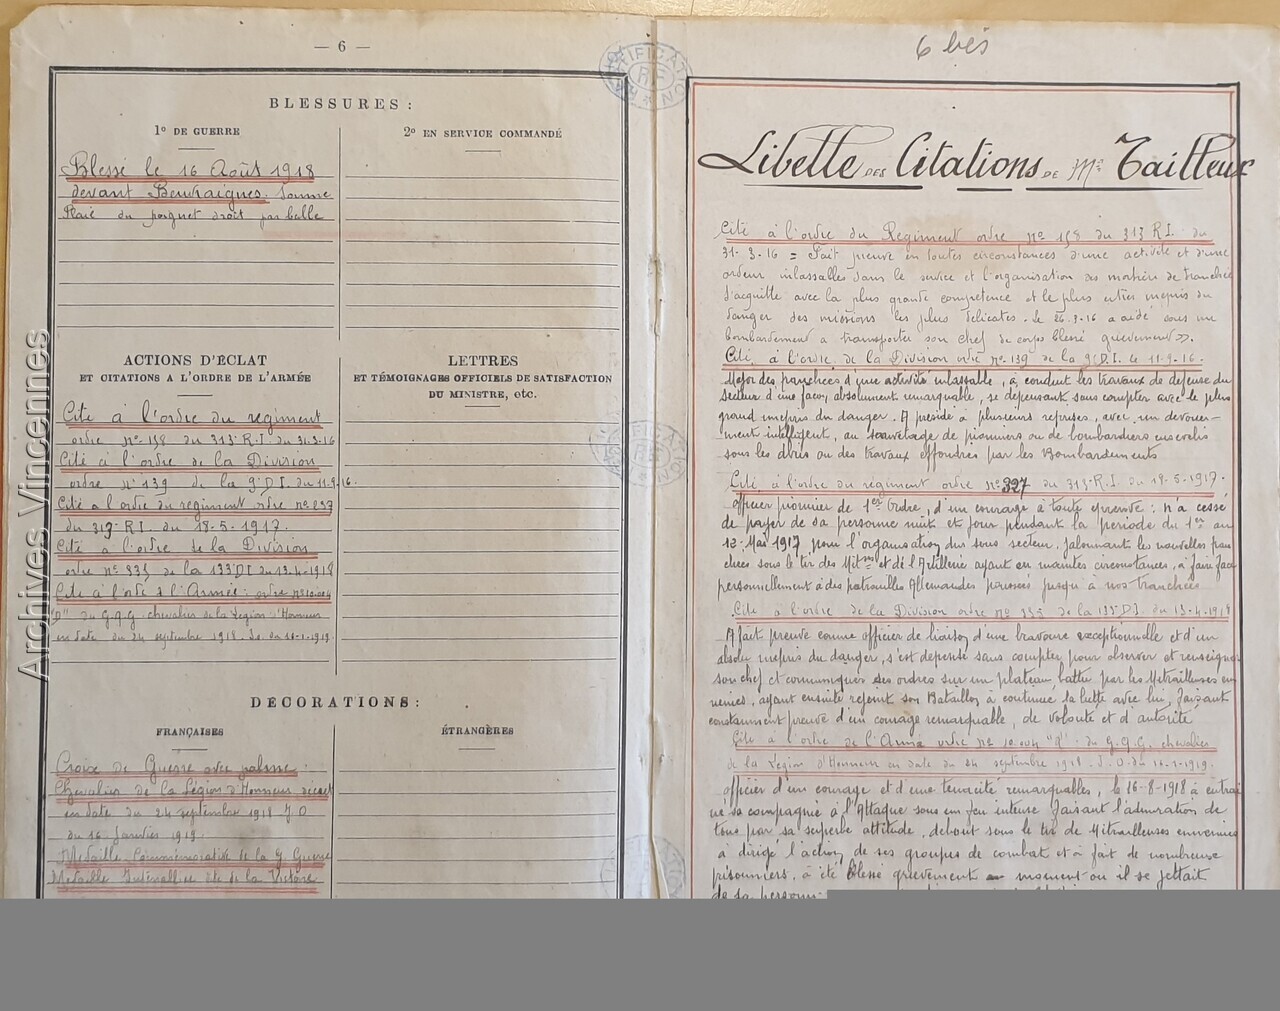 — 6 —
BLESSURES :
1º DE GUERRE
2º EN SERVICE COMMANDÉ
Blessé le 16 Août 1918
devant Beuvraignes Somme
Plaie du poignet droit par balle
ACTIONS D'ÉCLAT
ET CITATIONS A L'ORDRE DE L'ARMÉE
LETTRES
ET TÉMOIGNAGES OFFICIELS DE SATISFACTION
DU MINISTRE, etc.
Cité à l'ordre du régiment
ordre nº 158 du 313e R.I. du 31-3-16
Cité à l'ordre de la Division
ordre nº 139 de la 9e D.I. du 11-9-16.
Cité à l'ordre du régiment ordre nº
du 313e R.I. du 18-5-1917.
Cité à l'ordre de la Division
ordre nº 335 de la 133e DI du 13-4-1918
Cité à l'ordre de l'Armée: ordre nº 10.004
"D" du G.Q.G. chevalier de la Légion d'Honneur
en date du 24 septembre 1918 J.O. du 16-1-1919.
DÉCORATIONS :
FRANÇAISES
ÉTRANGÈRES
Croix de Guerre avec palme.
Chevalier de la Légion d'Honneur décret
en date du 24 septembre 1918 J.O
du 16 Janvier 1919.
Médaille Commémorative de la G Guerre
Médaille Interalliée dite de la Victoire
6 bis
Libellé DES Citations DE Mr Tailleux
Cité à l'ordre du Régiment ordre nº 158 du 313 R.I. du
31-3-16 = Fait preuve en toutes circonstances d'une activité et d'une
ardeur inlassables dans le service et l'organisation des mortiers de tranchée
s'acquitte avec la plus grande compétence et le plus entier mépris du
danger des missions les plus délicates. Le 26-3-16 a aidé sous un
bombardement à transporter son chef de corps blessé grièvement».
Cité à l'ordre de la Division ordre nº 139 de la 9e D.I. le 11-9-16.
Major des tranchées d'une activité inlassable, à conduit les travaux de défense du
secteur d'une façon absolument remarquable, se dépensant sans compter, avec le plus
grand mépris du danger. A présidé à plusieurs reprises, avec un dévoue-
ment intelligent, au sauvetage de pionniers ou de bombardiers ensevelis
sous les abris ou des travaux effondrés par les Bombardements
Cité à l'ordre du régiment ordre nº 327 du 313e R.I. du 19-5-1917.
Officier pionnier de 1er Ordre, d'un courage à toute épreuve: n'a cessé
de payer de sa personne nuit et jour pendant la période du 1er au
12 Mai 1917 pour l'organisation du sous secteur. Jalonnant les nouvelles tran
chées sous le tir des Mitses et de l'Artillerie ayant en maintes circonstances, à faire face
personnellement à des patrouilles Allemandes poussées jusqu'à nos tranchées
Cité à l'ordre de la Division ordre nº 335 de la 133e D.I. du 13-4-1918
A fait preuve comme officier de liaison d'une bravoure exceptionnelle et d'un
absolu mépris du danger, s'est dépensé sans compter pour observer et renseigner
son chef et communiquer ses ordres sur un plateau battu par les Mitrailleuses en
nemies, ayant ensuite rejoint son Bataillon à continué la lutte avec lui, faisant
constamment preuve d'un courage remarquable, de volonté et d'autorité
Cité à l'ordre de l'Armée ordre nº 10.004 "D" du G.Q.G. chevalier
de la Légion d'Honneur en date du 24 septembre 1918 J.O. du 16-1-1919.
Officier d'un courage et d'une tenacité remarquables, le 16-8-1918 à entraî
né sa compagnie à l'Attaque sous un feu intense faisant l'admiration de
tous par sa superbe attitude, debout sous le tir de Mitrailleuses ennemies
à dirigé l'action de ses groupes de combat et à fait de nombreux
prisonniers, à été blessé grièvement au moment où il se jettait
de sa personne
Archives Vincennes